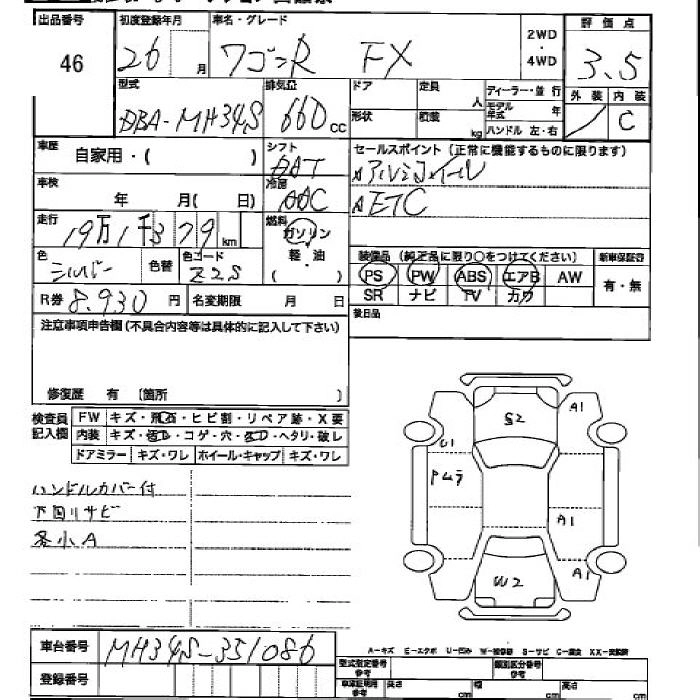 出品番号 初度登録年月 車名・グレード 2WD・4WD 評価点
46 26 月 ワゴンR FX 3.5
型式 排気量 ドア 定員 人 ディーラー・並行 外装 内装
DBA-MH34S 660 cc 形状 積載 kg モデル年式 年 C
ハンドル 左・右
車歴 自家用・( ) シフト セールスポイント (正常に機能するものに限ります)
アルミホイール
車検 年 月( 日) 冷房 AAC ETC
走行 19万1千379 km 燃料 ガソリン
軽・油
( )
色 シルバー 色替 色コード Z2S
装備品 (純正品に限り○をつけてください) 新車保証書
PS PW ABS エアB AW 有・無
SR ナビ TV カワ
R券 8,930 円 名変期限 月 日
後日品
注意事項申告欄(不具合内容等は具体的に記入して下さい)
修復歴 有 (箇所 )
検査員記入欄 FW キズ・飛石・ヒビ割・リペア跡・X要
内装 キズ・ ・コゲ・穴・ ・ヘタリ・破レ
ドアミラー キズ・ワレ ホイール・キャップ キズ・ワレ
ハンドルカバー付
下回リサビ
各小A
S2
A1
U1
Pムラ
A1
A1
W2
車台番号 MH34S-351086
登録番号
A-キズ E-エクボ U-凹み S-サビ
型式指定番号 参考 類別区分番号 参考
長さ cm 幅 cm 高さ cm